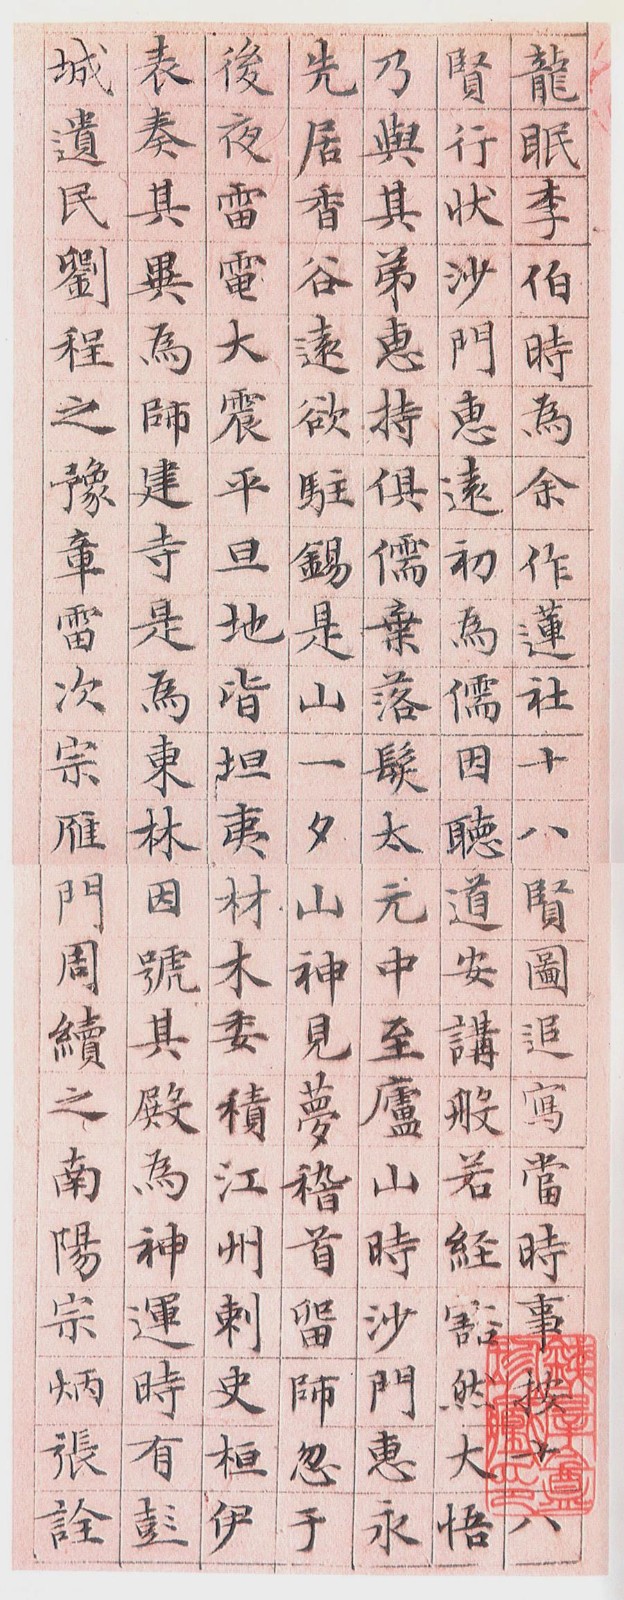 龍眠李伯時為余作蓮社十八賢圖追寫當時事按十八
賢行状沙門惠遠初為儒因聽道安講般若経豁然大悟
乃與其弟惠持俱儒棄落髮太元中至廬山時沙門惠永
先居香谷遠欲駐錫是山一夕山神見夢稽首留師忽于
後夜雷電大震平旦地皆坦夷材木委積江州刺史桓伊
表奏其異為師建寺是為東林因號其殿為神運時有彭
城遺民劉程之豫章雷次宗雁門周續之南陽宗炳張詮